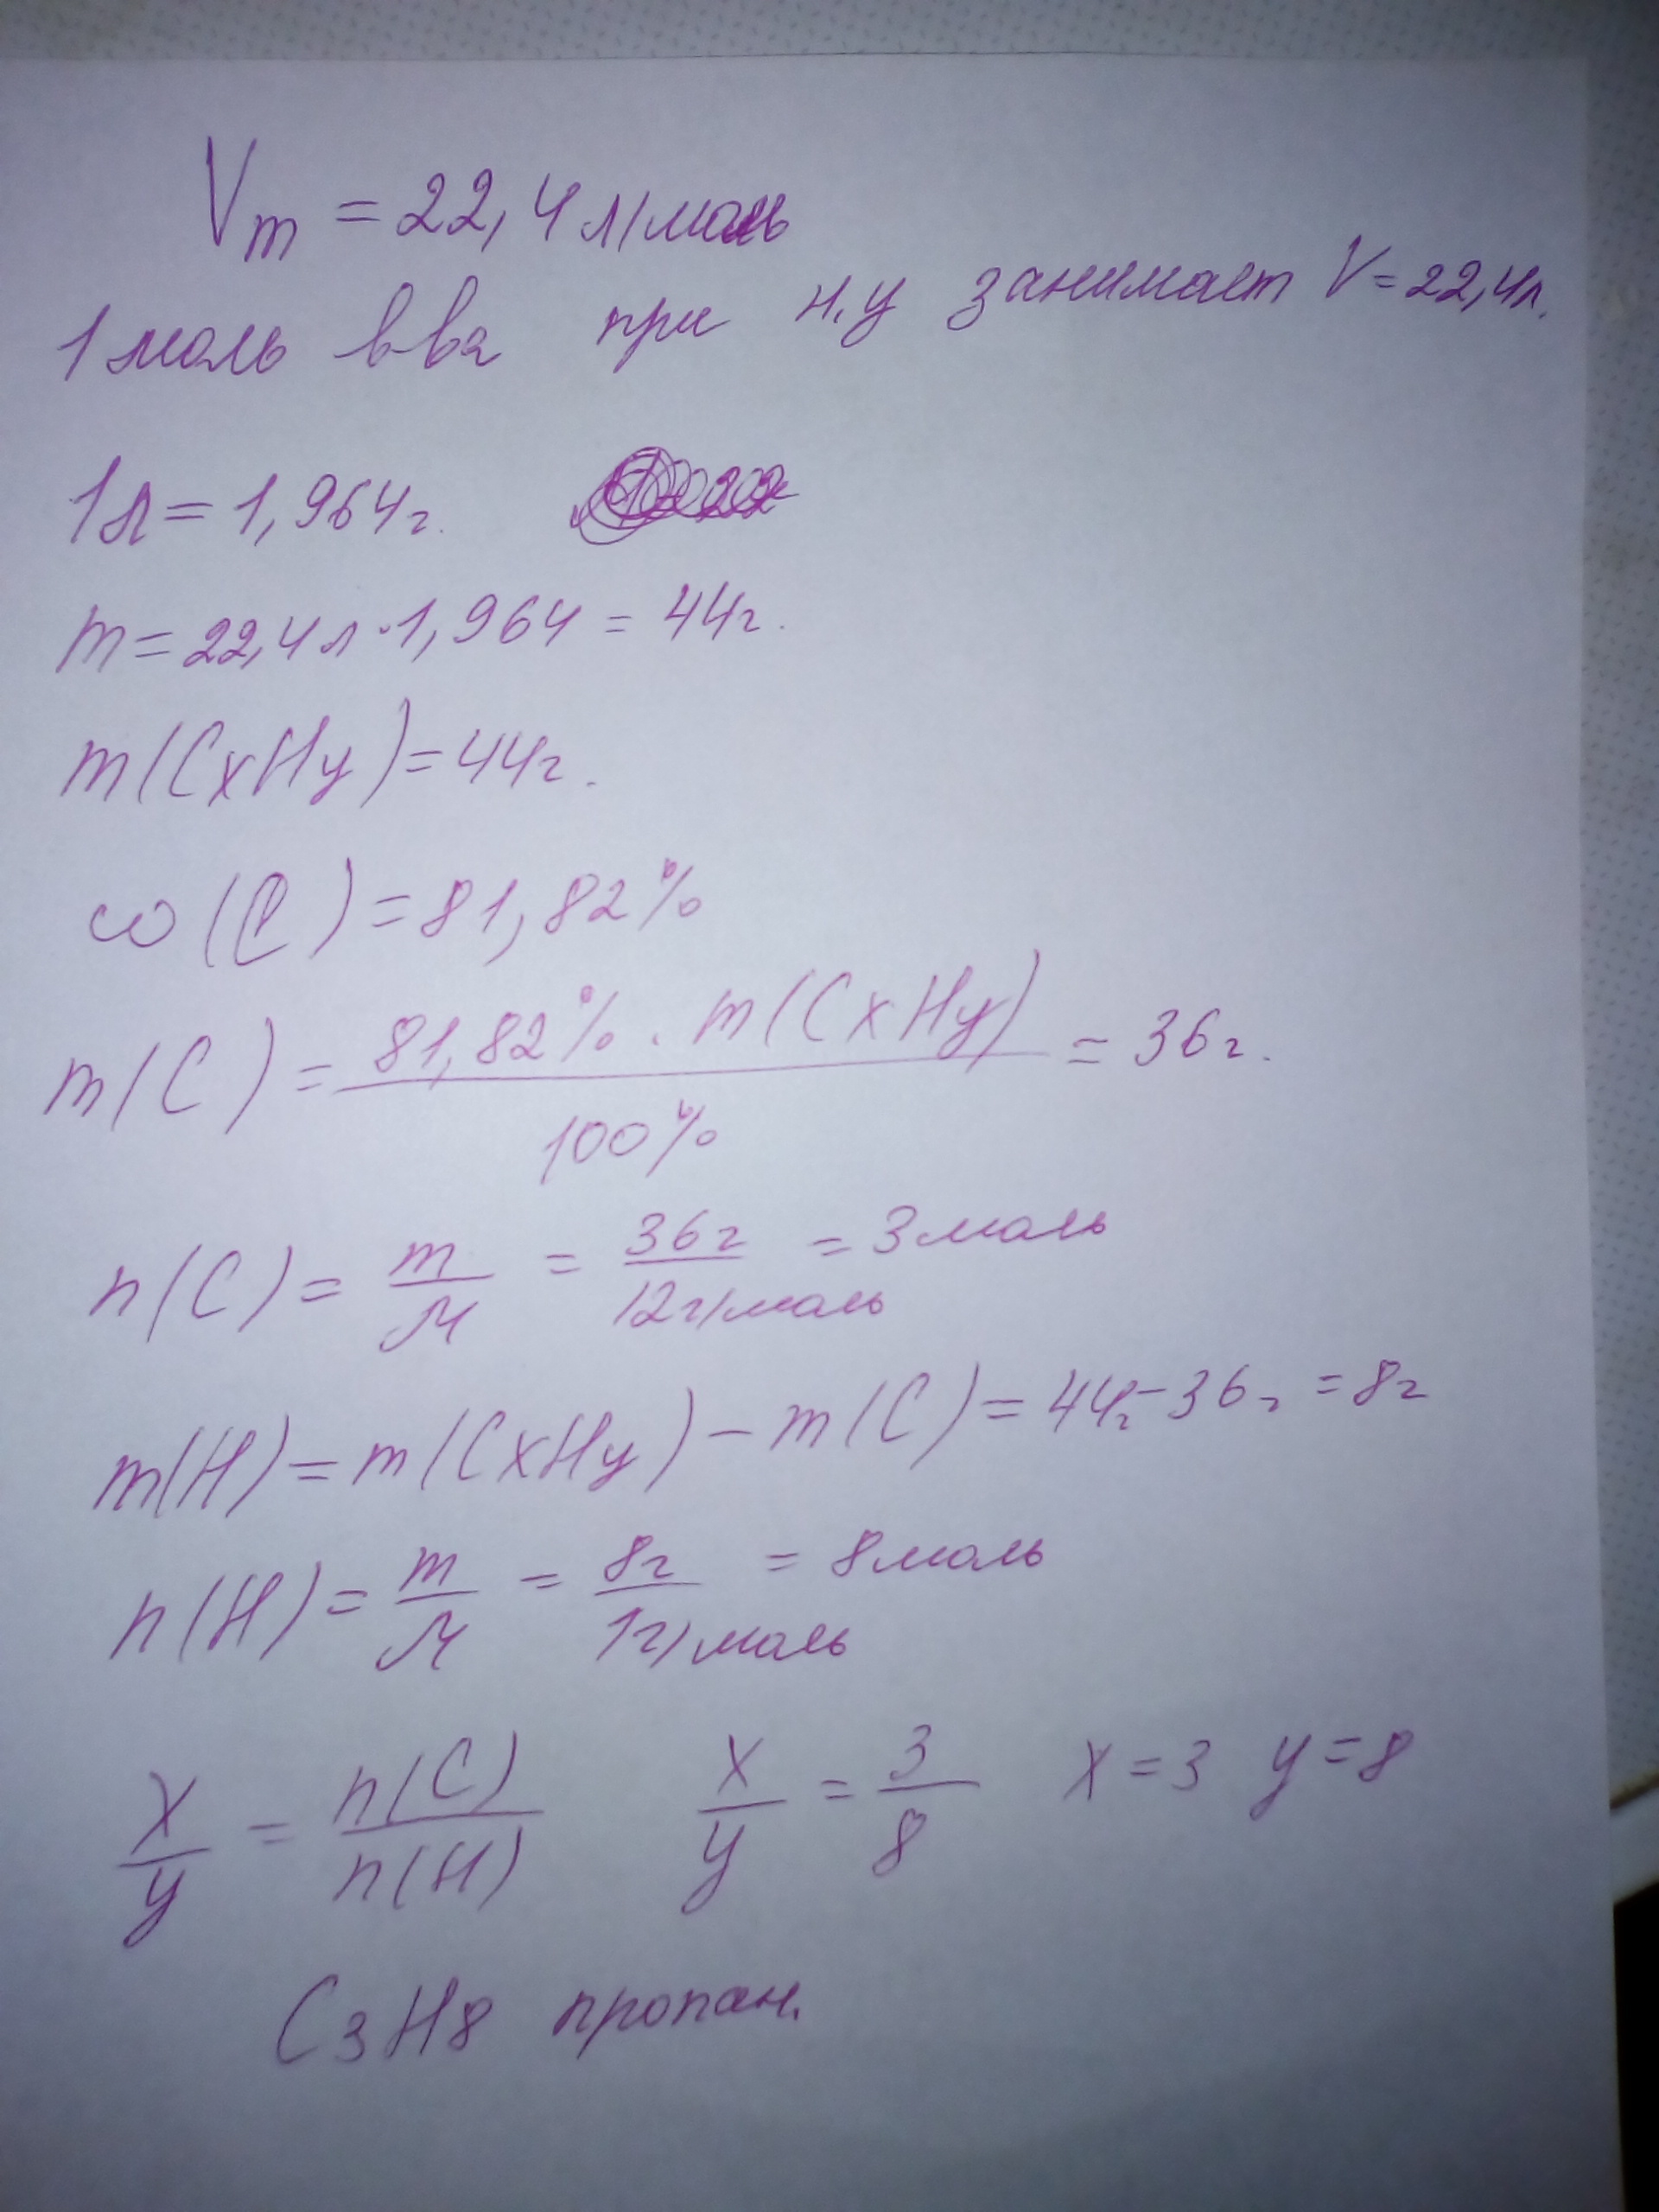 Vm = 22,4 л/моль
1 моль в-ва при н.у занимает V = 22,4л.
1л = 1,964г.
m = 22,4л · 1,964 = 44г.
m(CxHy) = 44г.
ω(C) = 81,82%
m(C) = 81,82% · m(CxHy) / 100% = 36г.
n(C) = m/M = 36г / 12г/моль = 3моль
m(H) = m(CxHy) - m(C) = 44г - 36г = 8г
n(H) = m/M = 8г / 1г/моль = 8моль
x/y = n(C)/n(H) x/y = 3/8 x = 3 y = 8
C3H8 пропан.